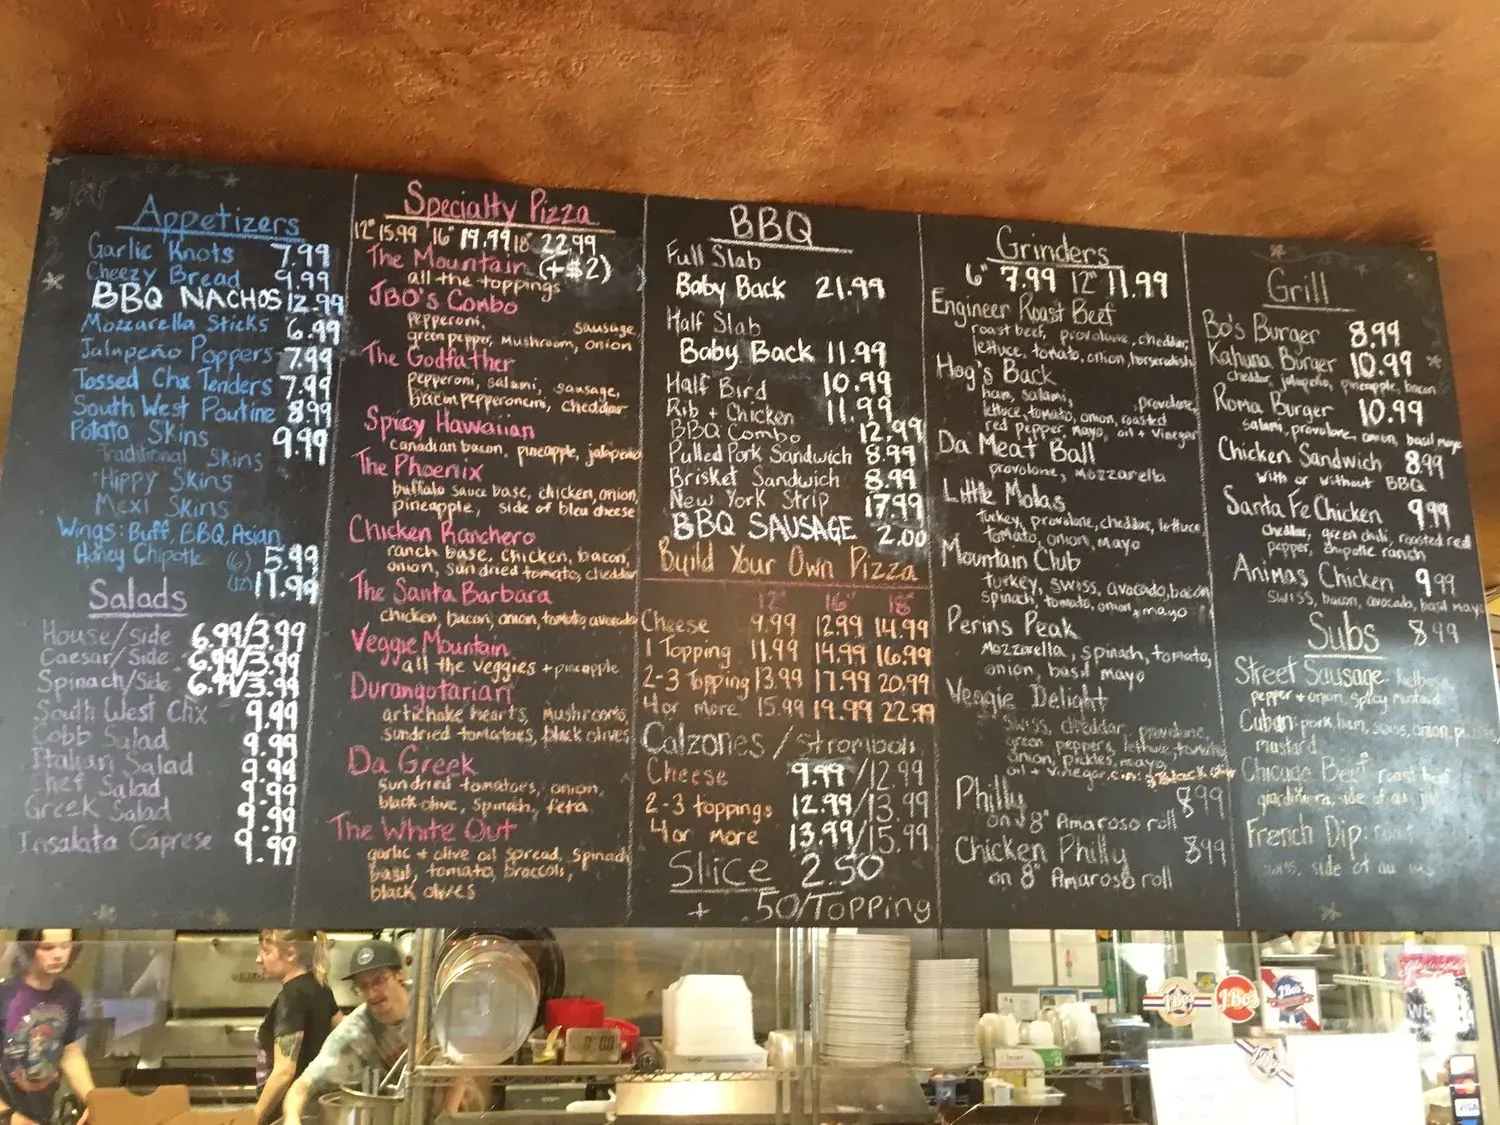 Appetizers
Garlic Knots 7.99
Cheezy Bread 9.99
BBQ NACHOS 12.99
Mozzarella Sticks 6.99
Jalapeño Poppers 7.99
Tossed Chx Tenders 7.99
South West Poutine 8.99
Potato Skins 9.99
Traditional Skins
Hippy Skins
Mexi Skins
Wings: Buff, BBQ, Asian
Honey Chipotle (6) 5.99
(12) 11.99
Salads
House/Side 6.99/3.99
Caesar/Side 6.99/3.99
Spinach/Side 6.99/3.99
South West Chx 9.99
Cobb Salad 9.99
Italian Salad 9.99
Chef Salad 9.99
Greek Salad 9.99
Insalata Caprese 9.99
Specialty Pizza
12" 15.99 16" 19.99 18" 22.99
The Mountain (+$2)
all the toppings
JBO's Combo
pepperoni, sausage,
green pepper, mushroom, onion
The Godfather
pepperoni, salami, sausage,
bacon, pepperoncini, cheddar
Spicy Hawaiian
canadian bacon, pineapple, jalapeno
The Phoenix
buffalo sauce base, chicken, onion,
pineapple, side of bleu cheese
Chicken Ranchero
ranch base, chicken, bacon,
onion, sundried tomato, cheddar
The Santa Barbara
chicken, bacon, onion, tomato, avocado
Veggie Mountain
all the veggies + pineapple
Durangotarian
artichoke hearts, mushrooms,
sundried tomatoes, black olives
Da Greek
sundried tomatoes, onion,
black olive, spinach, feta
The White Out
garlic + olive oil spread, spinach
basil, tomato, broccoli,
black olives
BBQ
Full Slab
Baby Back 21.99
Half Slab
Baby Back 11.99
Half Bird 10.99
Rib + Chicken 11.99
BBQ Combo 12.99
Pulled Pork Sandwich 8.99
Brisket Sandwich 8.99
New York Strip 17.99
BBQ SAUSAGE 2.00
Build Your Own Pizza
12" 16" 18"
Cheese 9.99 12.99 14.99
1 Topping 11.99 14.99 16.99
2-3 Topping 13.99 17.99 20.99
4 or more 15.99 19.99 22.99
Calzones / Stromboli
Cheese 9.99/12.99
2-3 toppings 12.99/13.99
4 or more 13.99/15.99
Slice 2.50
+ .50/Topping
Grinders
6" 7.99 12" 11.99
Engineer Roast Beef
roast beef, provolone, cheddar,
lettuce, tomato, onion, horseradish
Hog's Back
ham, salami, provolone,
lettuce, tomato, onion, roasted
red pepper mayo, oil + vinegar
Da Meat Ball
provolone, mozzarella
Little Molas
turkey, provolone, cheddar, lettuce
tomato, onion, mayo
Mountain Club
turkey, swiss, avocado, bacon
spinach, tomato, onion, mayo
Perins Peak
mozzarella, spinach, tomato,
onion, basil mayo
Veggie Delight
swiss, cheddar, provolone,
green peppers, lettuce, tomato
onion, pickles, mayo,
oil + vinegar,
Philly 8.99
on 8" Amaroso roll
Chicken Philly 8.99
on 8" Amaroso roll
Grill
Bo's Burger 8.99
Kahuna Burger 10.99
cheddar, jalapeño, pineapple, bacon
Roma Burger 10.99
salami, provolone, onion, basil mayo
Chicken Sandwich 8.99
with or without BBQ
Santa Fe Chicken 9.99
cheddar, green chili, roasted red
pepper, chipotle ranch
Animas Chicken 9.99
swiss, bacon, avocado, basil mayo
Subs 8.99
Street Sausage:
pepper + onion, spicy mustard
Cuban: pork, ham, swiss, onion, pickles,
mustard
Chicago Beef roast beef
giardiniera, side of au jus
French Dip: roast
swiss, side of au jus
JBo's
JBo's
JBo's
VISA